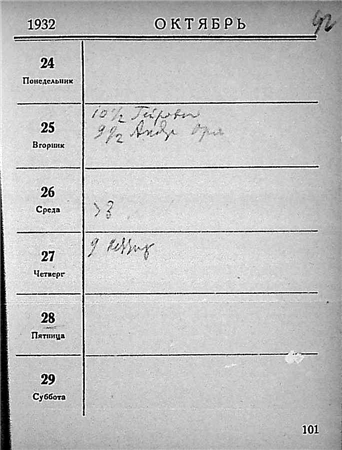 1932 ОКТЯБРЬ 92
24
Понедельник
10 1/2
25
9 1/2 Андр
Вторник
26
Среда
27
9
Четверг
28
Пятница
29
Суббота
101